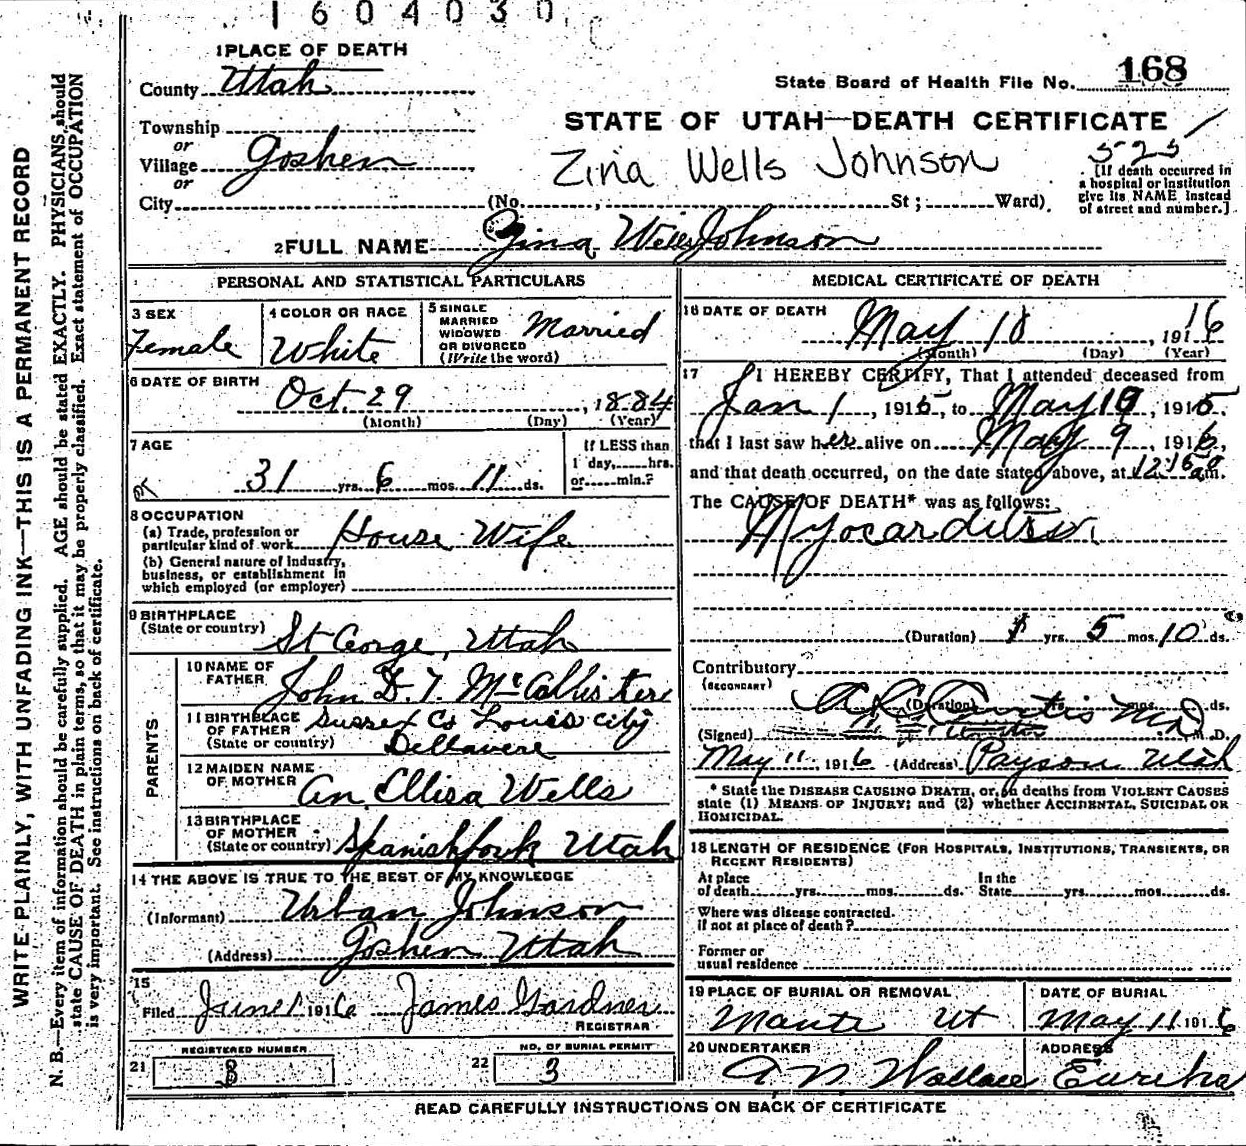 1604030
1 PLACE OF DEATH
County Utah
State Board of Health File No. 168
STATE OF UTAH—DEATH CERTIFICATE
Township
or
Village Goshen
or
City (No. , St ; Ward)
Zina Wells Johnson
525
[If death occurred in
a hospital or institution
give its NAME instead
of street and number.]
2 FULL NAME Zina Wells Johnson
PERSONAL AND STATISTICAL PARTICULARS
3 SEX
Female
4 COLOR OR RACE
White
5 SINGLE
MARRIED
WIDOWED
OR DIVORCED
(Write the word)
Married
6 DATE OF BIRTH
Oct. 29, 1884
(Month) (Day) (Year)
7 AGE
31 yrs. 6 mos. 11 ds.
If LESS than
1 day, hrs.
or min.?
8 OCCUPATION
(a) Trade, profession or
particular kind of work House Wife
(b) General nature of industry,
business, or establishment in
which employed (or employer)
9 BIRTHPLACE
(State or country) St George, Utah
PARENTS
10 NAME OF
FATHER John D. T. McCallister
11 BIRTHPLACE
OF FATHER
(State or country)
Sussex Co Louis City
Dellavere
12 MAIDEN NAME
OF MOTHER An Ellisa Wells
13 BIRTHPLACE
OF MOTHER
(State or country) Spanishfork Utah
14 THE ABOVE IS TRUE TO THE BEST OF MY KNOWLEDGE
(Informant) Urban Johnson
(Address) Goshen Utah
15
Filed June 1 1916 James Gardner
REGISTRAR
REGISTERED NUMBER
21 3
NO. OF BURIAL PERMIT
22 3
MEDICAL CERTIFICATE OF DEATH
16 DATE OF DEATH
May 10, 1916
(Month) (Day) (Year)
17 I HEREBY CERTIFY, That I attended deceased from
Jan 1, 1915, to May 10, 1915.
that I last saw her alive on May 9 1916,
and that death occurred, on the date stated above, at 12:16 am.
The CAUSE OF DEATH* was as follows:
Myocarditis
(Duration) 1 yrs. 5 mos. 10 ds.
Contributory
(SECONDARY)
(Duration) yrs. mos. ds.
(Signed) A L Curtis M.D. M.D.
May 11, 1916 (Address) Payson Utah
* State the DISEASE CAUSING DEATH, or, in deaths from VIOLENT CAUSES
state (1) MEANS OF INJURY; and (2) whether ACCIDENTAL, SUICIDAL OR
HOMICIDAL.
18 LENGTH OF RESIDENCE (FOR HOSPITALS, INSTITUTIONS, TRANSIENTS, OR
RECENT RESIDENTS)
At place
of death yrs. mos. ds.
In the
State yrs. mos. ds.
Where was disease contracted.
if not at place of death?
Former or
usual residence
19 PLACE OF BURIAL OR REMOVAL
Manti Ut
DATE OF BURIAL
May 11 1916
20 UNDERTAKER
A N Wallace
ADDRESS
Eureka
READ CAREFULLY INSTRUCTIONS ON BACK OF CERTIFICATE
WRITE PLAINLY, WITH UNFADING INK—THIS IS A PERMANENT RECORD
N. B.—Every item of information should be carefully supplied. AGE should be stated EXACTLY. PHYSICIANS should
state CAUSE OF DEATH in plain terms, so that it may be properly classified. Exact statement of OCCUPATION
is very important. See instructions on back of certificate.